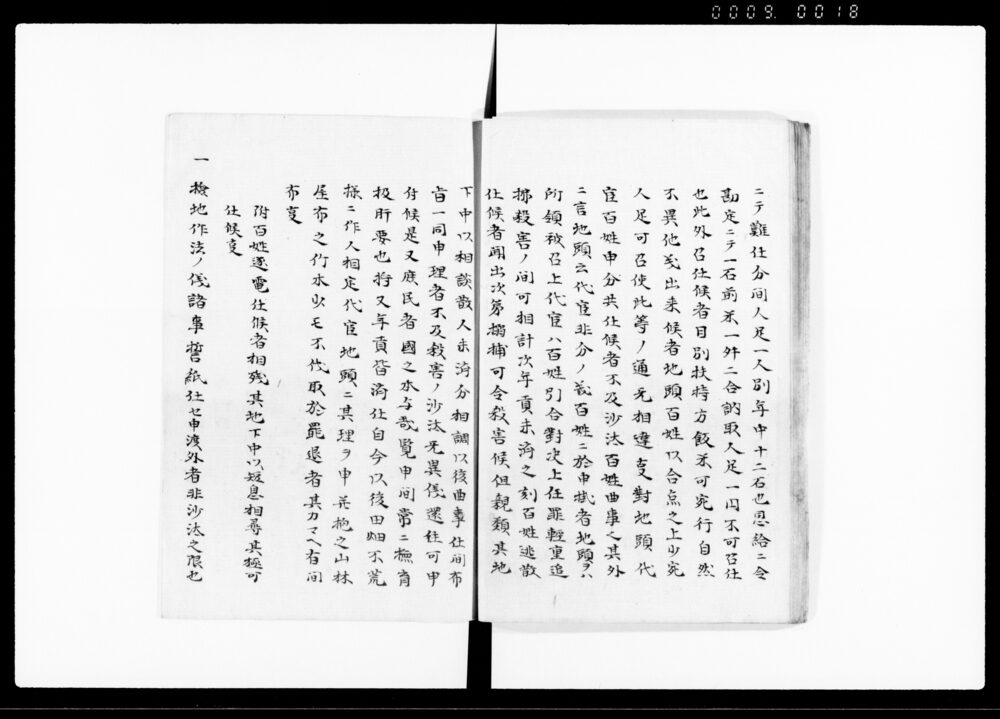 0009. 0018
ニテ難仕分間人足一人別年中十二石也恩給ニ令
勘定ニテ一石前米一舛二合訥取人足一円不可召仕
也此外召仕候者目別扶持方飯米可宛行自然
不異他㐂出来候者地頭百姓以合点之上少宛
人足可召使此等ノ通无相違㕝對地頭代
官百姓申分共仕候者不及沙汰百姓曲事之其外
ニ言地頭云代官非分ノ㐂百姓ニ於申掠者地頭ヲハ
所領被召上代官ハ百姓引合對决上任罪輕重追
拂殺害ノ間可相計次年貢未済之刻百姓逃散
仕候者聞出次第搦捕可令殺害候但親類其地
下中以相談散人未済分相調以後曲事仕間布
旨一同申理者不及殺害ノ沙汰无異儀還住可申
付候是又庶民者國之本与㢤覧申間常ニ撫育
扱肝要也将又年貢皆済仕自今以後田畑不荒
様ニ作人相定代官地頭ニ其理ヲ申并抱之山林
屋布之竹木少モ不伐取於罷退者其カマヘ有間
布㕝
附百姓逐電仕候者相残其地下中以短息相尋其極可
仕候㕝
一 撿地作法ノ儀諸事誓紙仕セ申渡外者非沙汰之限也